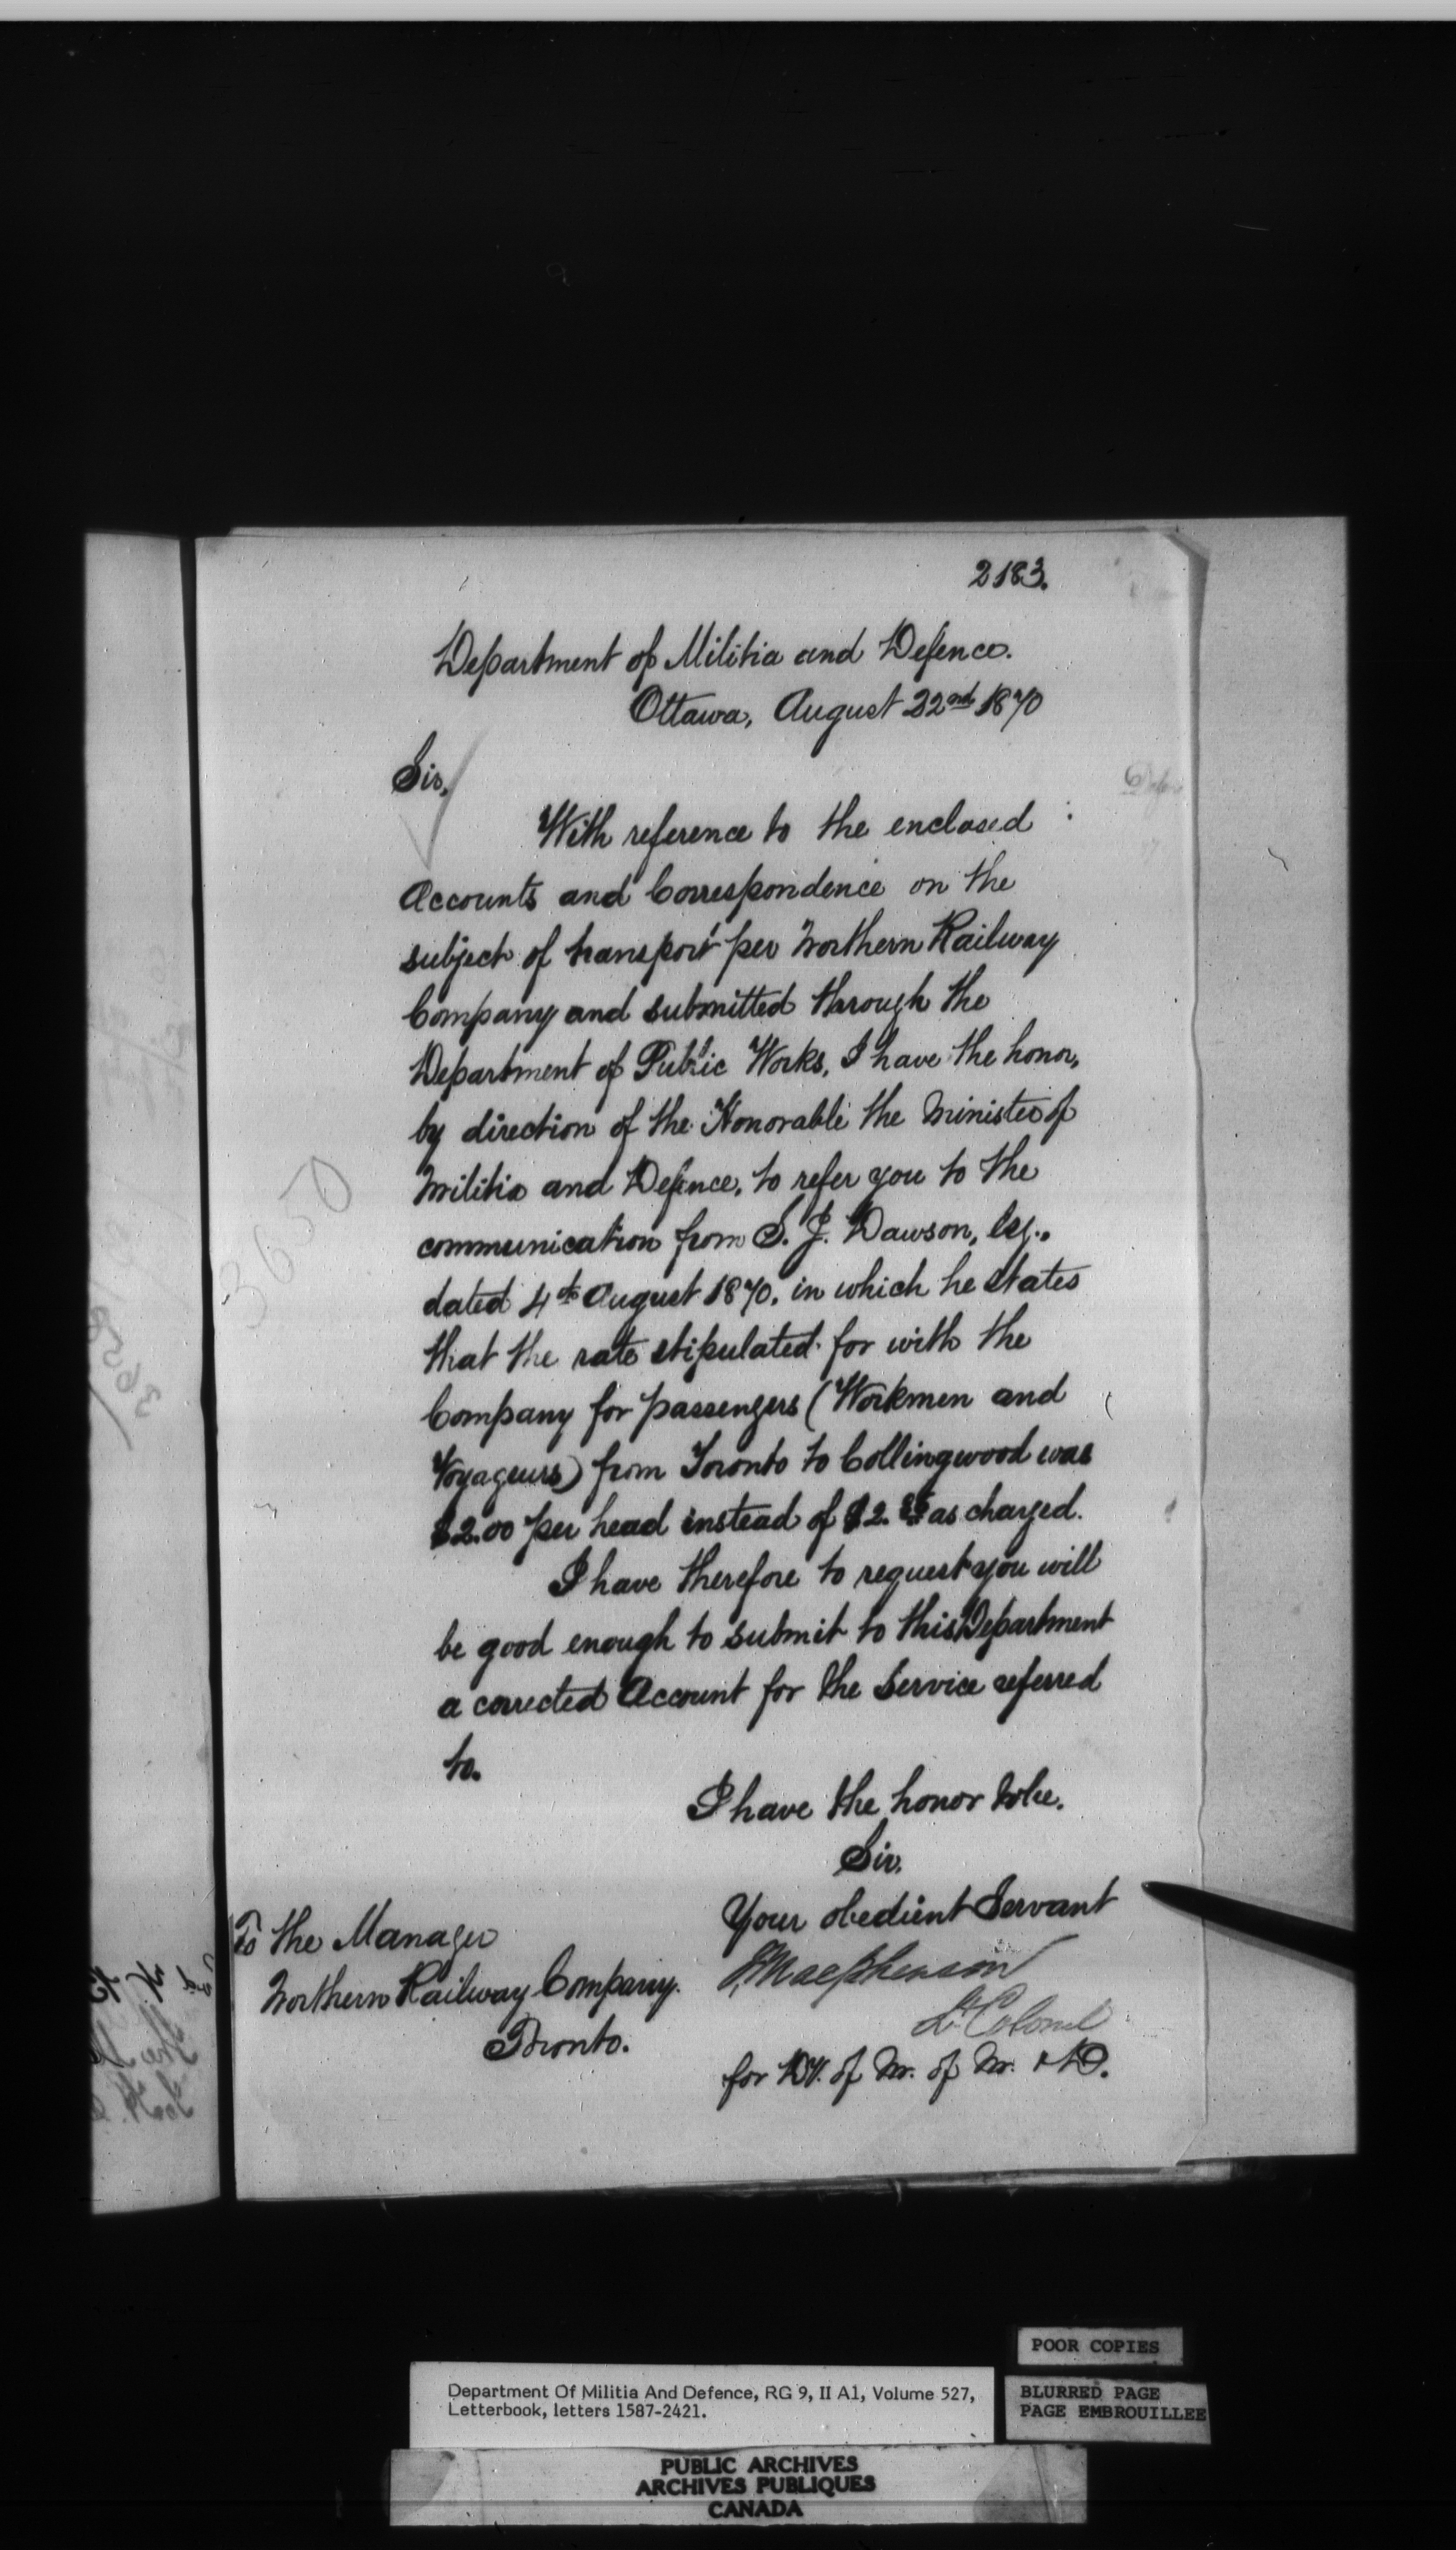 2183.
Department of Militia and Defence.
Ottawa, August 22nd 1870
Sir,
With reference to the enclosed
Accounts and Correspondence on the
subject of transport per Northern Railway
Company and submitted through the
Department of Public Works, I have the honor,
by direction of the Honorable the Minister of
Militia and Defence, to refer you to the
communication from S. J. Dawson, Esq.,
dated 4th August 1870, in which he states
that the rate stipulated for with the
Company for passengers (Workmen and
Voyageurs) from Toronto to Collingwood was
$2.00 per head instead of $2. as charged.
I have therefore to request you will
be good enough to submit to this Department
a corrected Account for the Service referred
to.
I have the honor to be,
Sir,
Your obedient Servant
Macpherson
Lt. Colonel
for Dy. of M. of M. & D.
To the Manager
Northern Railway Company.
Toronto.
3650
POOR COPIES
BLURRED PAGE
PAGE EMBROUILLEE
Department Of Militia And Defence, RG 9, II A1, Volume 527,
Letterbook, letters 1587-2421.
PUBLIC ARCHIVES
ARCHIVES PUBLIQUES
CANADA